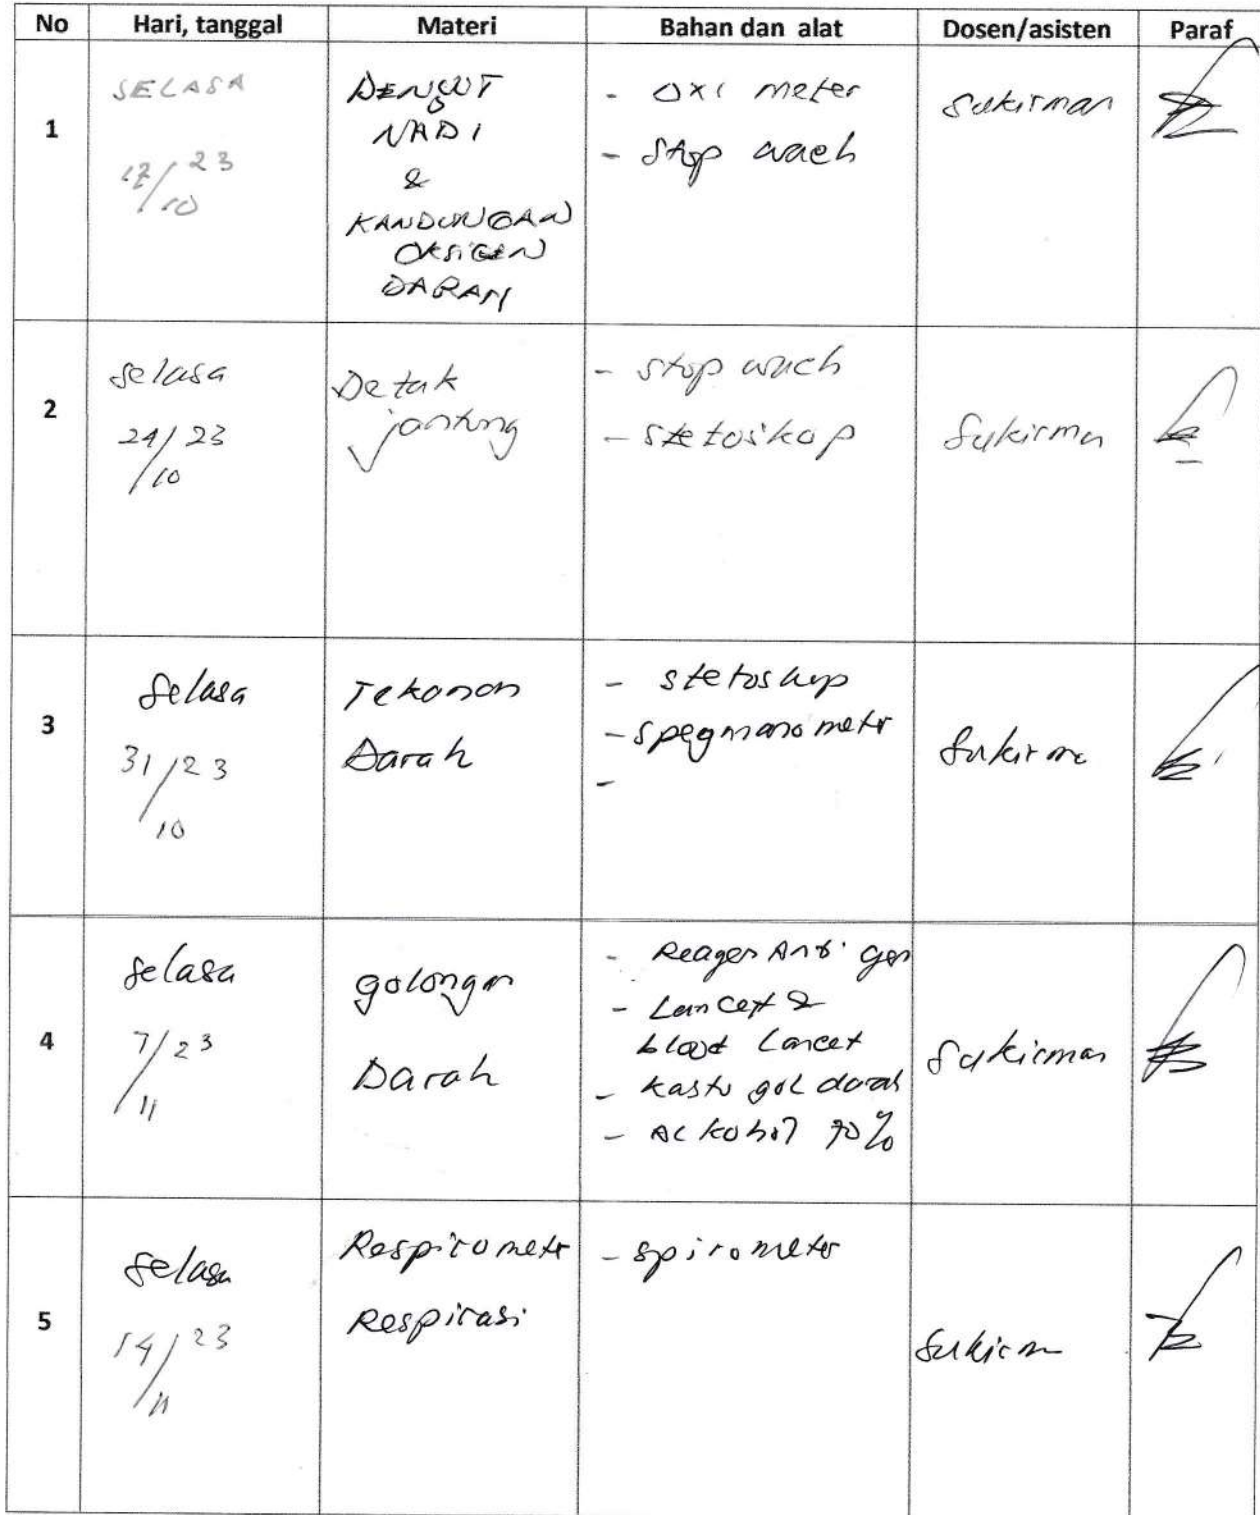 No Hari, tanggal Materi Bahan dan alat Dosen/asisten Paraf
1
SELASA
17/10 23
DENYUT
NADI
&
KANDUNGAN
OKSIGEN
DARAH
- oxi meter
- Stop wach
Sukirman
2
Selasa
24/10 23
Detak
jantung
- stop wach
- stetoskop
Sukirman
3
Selasa
31/10 23
Tekanan
Darah
- stetoskop
- spegmanometr
-
Sukirman
4
Selasa
7/11 23
golongan
Darah
- Reagen Anti gen
- Lancet &
blood Lancet
- kartu gol darah
- Alkohol 70%
Sukirman
5
Selasa
14/11 23
Respirometr
Respirasi
- spirometer
Sukirman